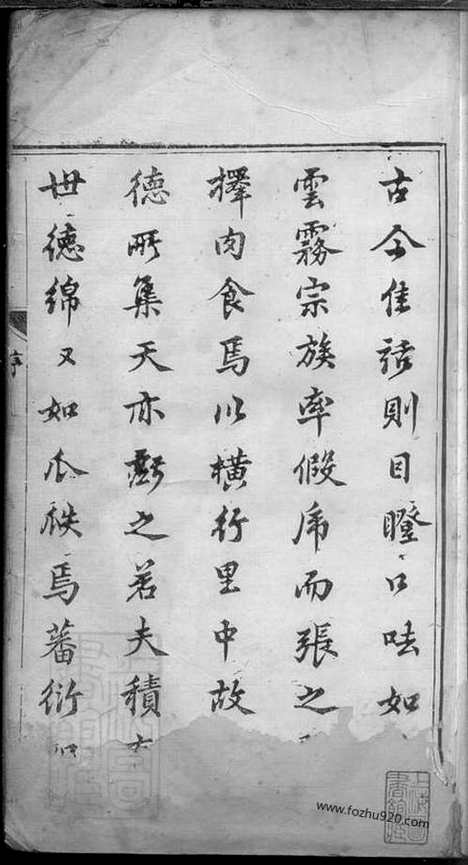 古今佳話則目瞪口呿如
雲霧宗族率假席而張之
擇肉食焉以橫行里中故
德所集天亦斲之若夫積
世德綿又如瓜瓞焉蕃衍
序
上海圖書館藏
www.fozhu920.com